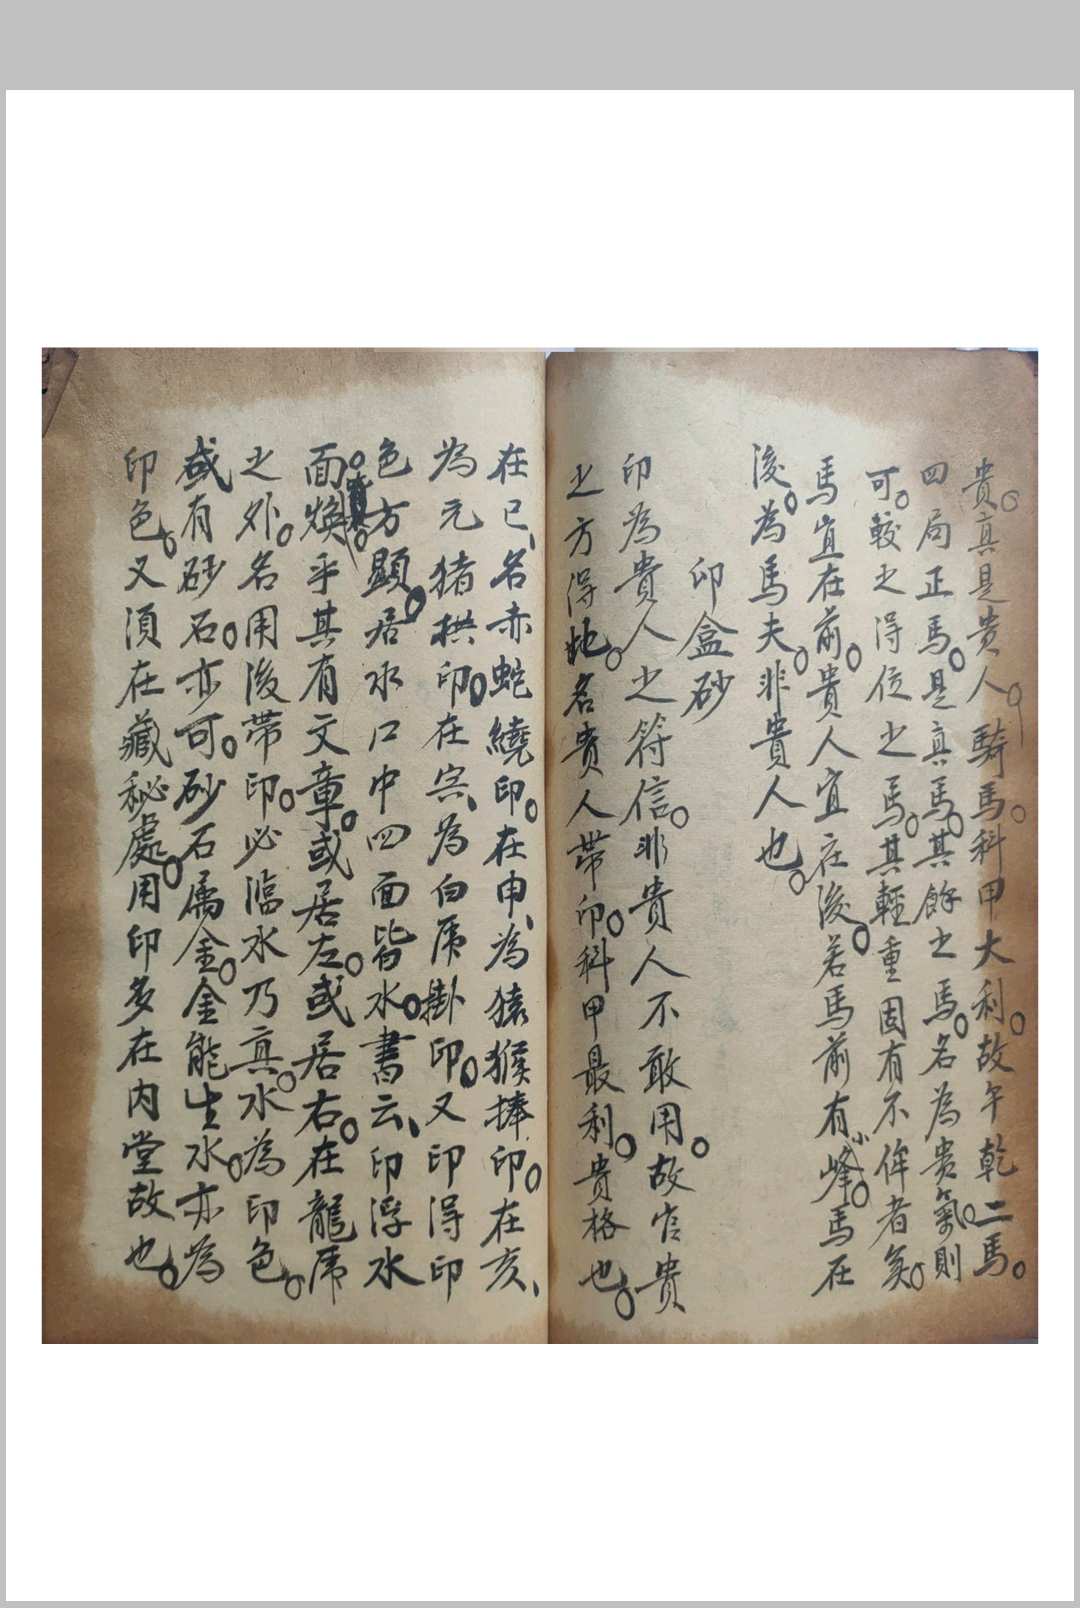 貴。真是贵人騎馬。科甲大利。故午乾二馬。
四局正馬。是真馬。其餘之馬。名為贵氣。則
可。較之得位之馬。其輕重固有不侔者矣。
馬宜在前。貴人宜在後。若馬前有小峰。馬在
後。為馬夫。非貴人也。
印盒砂
印為貴人之符信。非贵人不敢用。故官贵
之方得此。名贵人帶印。科甲最利。贵格也。
在巳、名赤蛇繞印。在申、為猿猴捧印。在亥、
為元猪拱印。在寅、為白虎掛印。又印得印
色方顯。居水口中四面皆水。書云、印浮水
面。煥乎其有文章。或居左。或居右。在龍虎
之外。名用後帶印。必臨水乃真。水為印色。
或有砂石。亦可。砂石屬金。金能生水。亦為
印色。又須在藏秘處。用印多在内堂故也。